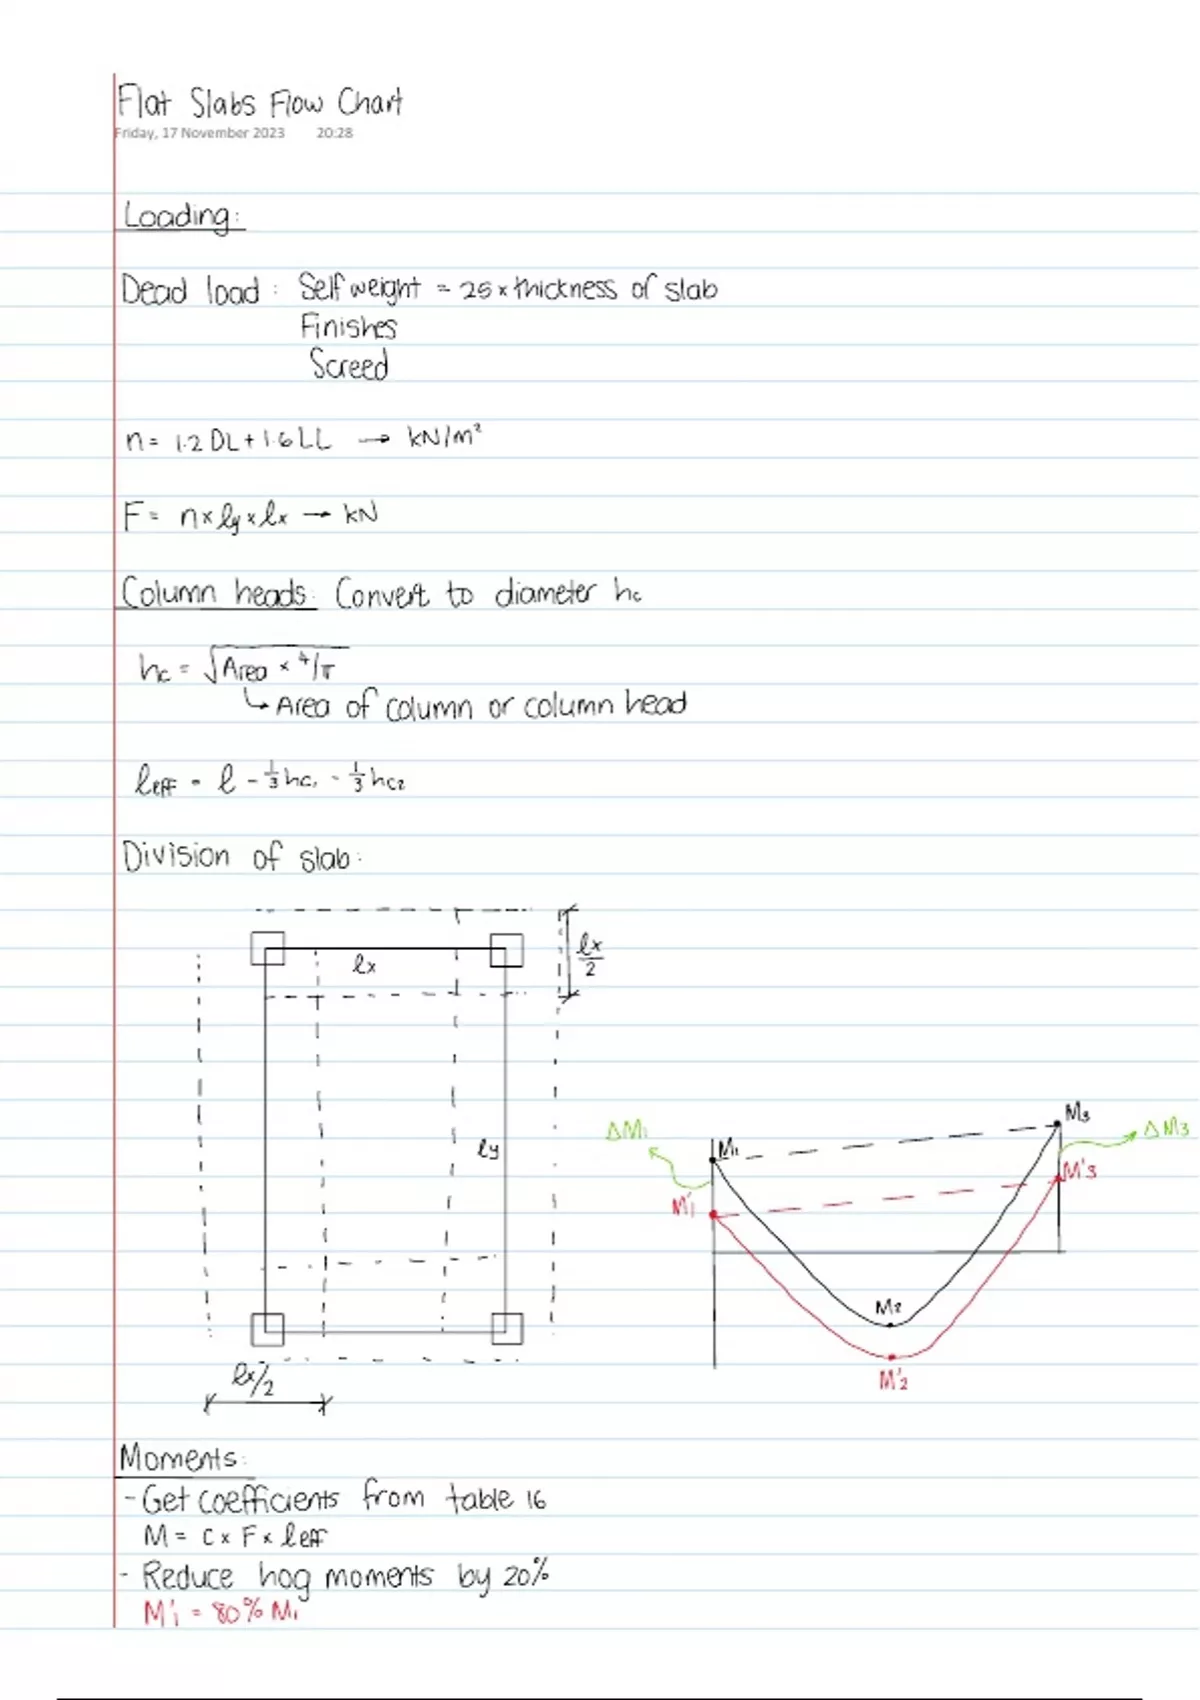 Flat Slabs Flow Chart
Friday, 17 November 2023 20:28
Loading:
Dead load: Self weight = 25 x thickness of slab
Finishes
Screed
n = 1.2 DL + 1.6 LL → kN/m²
F = n x ly x lx → kN
Column heads: Convert to diameter hc
hc = √Area x 4/π
↳ Area of column or column head
leff = l - 1/3 hc1 - 1/3 hc2
Division of slab:
lx
lx/2
ly
lx/2
ΔM1
M1
M3
ΔM3
M'1
M'3
M2
M'2
Moments:
- Get coefficients from table 16
M = C x F x leff
- Reduce hog moments by 20%
M'1 = 80% M1